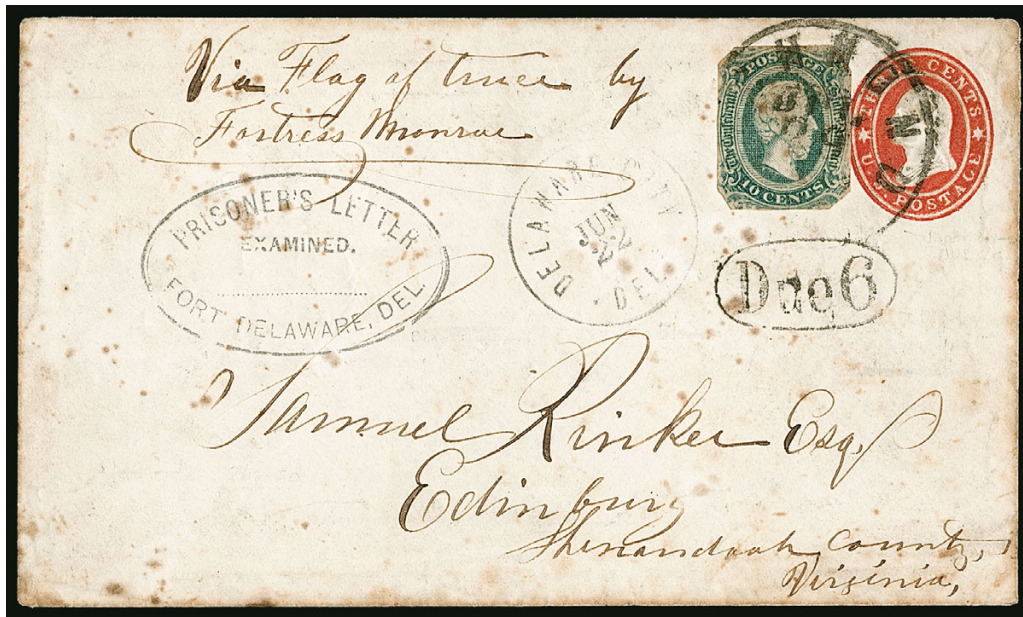 Via Flag of truce by
Fortress Monroe
POSTAGE
10 CENTS
THREE CENTS
U.S. POSTAGE
PRISONER'S LETTER
EXAMINED.
FORT DELAWARE, DEL.
DELAWARE CITY
JUN
22
DEL.
Due 6
Samuel Rinker Esq.
Edinburg
Shenandoah County,
Virginia,